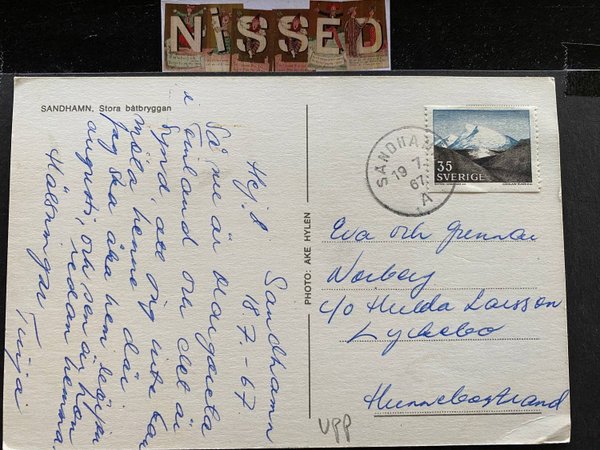 NISSED
SANDHAMN. Stora båtbryggan
Sandhamn
18.7-67
Hej!
Så nu är Margareta
i Finland och det är
synd, att jag inte kan
möta henne där.
Jag ska åka hem i
augusti, och sen är hon
redan hemma.
Hälsningar Tuija
PHOTO: ÅKE HYLÉN
SANDHAMN
19 7
67
A
35
SVERIGE
Eva och Gunnar
Norberg
c/o Hulda Larsson
Lyckebo
Hunnebostrand
UPP